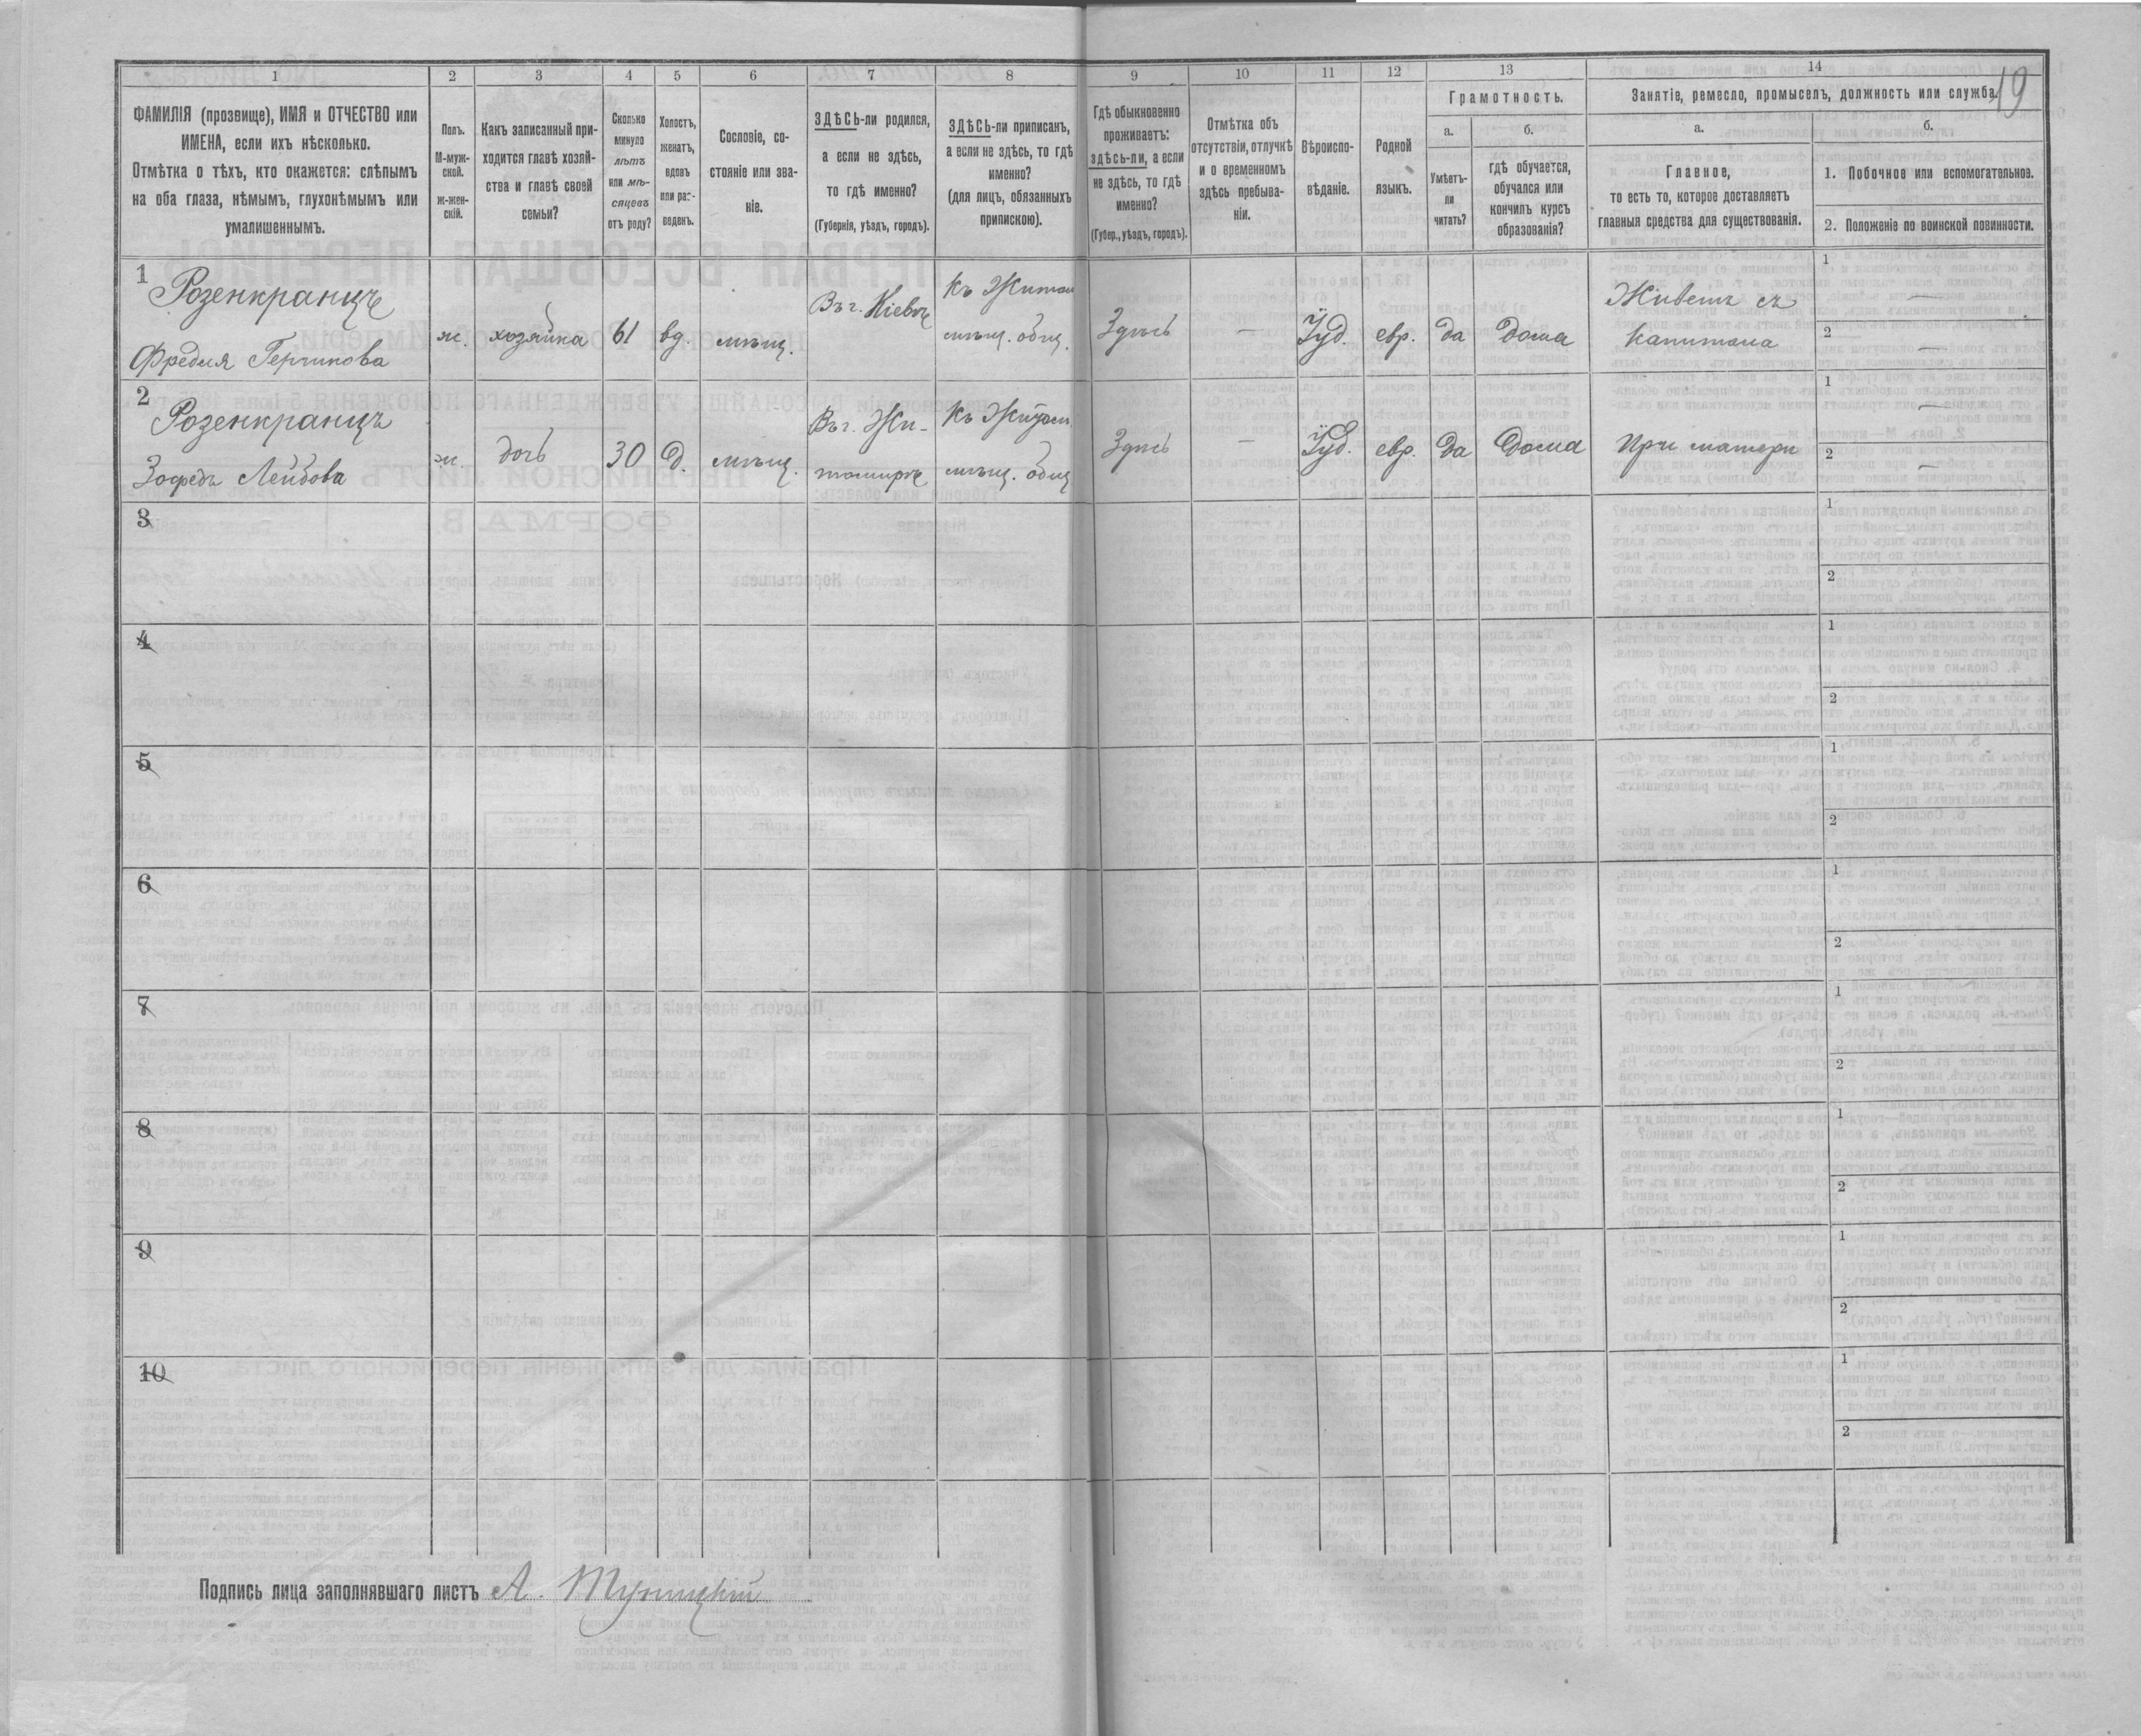 19
1 2 3 4 5 6 7 8 9 10 11 12 13 14
ФАМИЛІЯ (прозвище), ИМЯ и ОТЧЕСТВО или
ИМЕНА, если ихъ нѣсколько.
Отмѣтка о тѣхъ, кто окажется: слѣпымъ
на оба глаза, нѣмымъ, глухонѣмымъ или
умалишеннымъ.
Полъ.
М-муж-
ской.
ж-жен-
скій.
Какъ записанный при-
ходится главѣ хозяй-
ства и главѣ своей
семьи?
Сколько
минуло
лѣтъ
или мѣ-
сяцевъ
отъ роду?
Холостъ,
женатъ,
вдовъ
или раз-
веденъ.
Сословіе, со-
стояніе или зва-
ніе.
ЗДѢСЬ-ли родился,
а если не здѣсь,
то гдѣ именно?
(Губернія, уѣздъ, городъ).
ЗДѢСЬ-ли приписанъ,
а если не здѣсь, то гдѣ
именно?
(для лицъ, обязанныхъ
припискою).
Гдѣ обыкновенно
проживаетъ:
здѣсь-ли, а если
не здѣсь, то гдѣ
именно?
(Губер., уѣздъ, городъ).
Отмѣтка объ
отсутствіи, отлучкѣ
и о временномъ
здѣсь пребыва-
ніи.
Вѣроиспо-
вѣданіе.
Родной
языкъ.
Грамотность.
а.
Умѣетъ-
ли
читать?
б.
гдѣ обучается,
обучался или
кончилъ курсъ
образованія?
Занятіе, ремесло, промыселъ, должность или служба.
а.
Главное,
то есть то, которое доставляетъ
главныя средства для существованія.
б.
1. Побочное или вспомогательное.
2. Положеніе по воинской повинности.
1
Розенкранцъ
Фредля Гершкова
ж.
хозяйка
61
вд.
мѣщ.
Въ г. Кіевѣ
Къ Житом
мѣщ. общ.
Здѣсь
—
Іуд.
евр.
да
дома
Живетъ съ
капитала
1 —
2 —
2
Розенкранцъ
Зофедъ Лейбова
ж.
дочь
30
д.
мѣщ.
Въ г. Жи-
томирѣ
Къ Житом.
мѣщ. общ
Здѣсь
—
Іуд.
евр.
да
дома
При матери
1 —
2 —
3
1
2
4
1
2
5
1
2
6
1
2
7
1
2
8
1
2
9
1
2
10
1
2
Подпись лица заполнявшаго листъ А. Туницкій